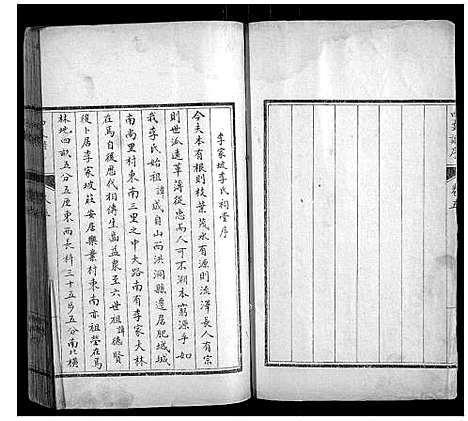 李家坡李氏祠堂序
今夫木有根則枝葉茂水有源則流澤長人有宗
則世派遠苹薄從忠尚人可不溯本窮源乎如
我李氏始祖諱成自山西洪洞縣遷居肥城城
南尚里村東南三里之中大路南有李家大林
在焉自後歷代相傳生齒益衆至六世祖諱德賢
復卜居李家坡莊安居樂業村東南亦祖塋在焉
林地四畝五分五厘東西長科三十五弓五分南北橫